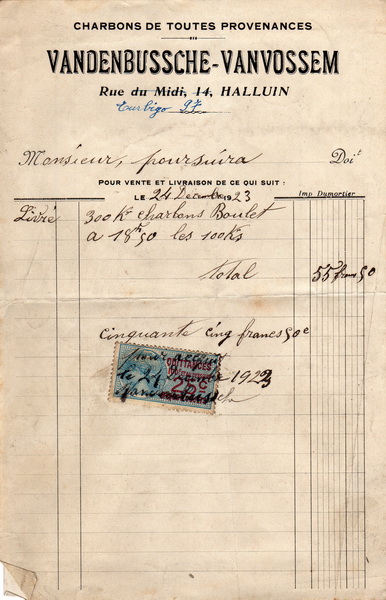 CHARBONS DE TOUTES PROVENANCES
VANDENBUSSCHE-VANVOSSEM
Rue du Midi, 14, HALLUIN
Turbigo 97
Monsieur, poursuivra Doit
POUR VENTE ET LIVRAISON DE CE QUI SUIT :
LE 24 Décembre 1923 Imp Dumortier
Livré 300 Ks charbons Boulet
a 18 fr 50 les 100 Ks
total 55 francs 50
cinquante cinq francs 50c
pour acquit
QUITTANCES
25c
le 24 1923
Vandenbussche